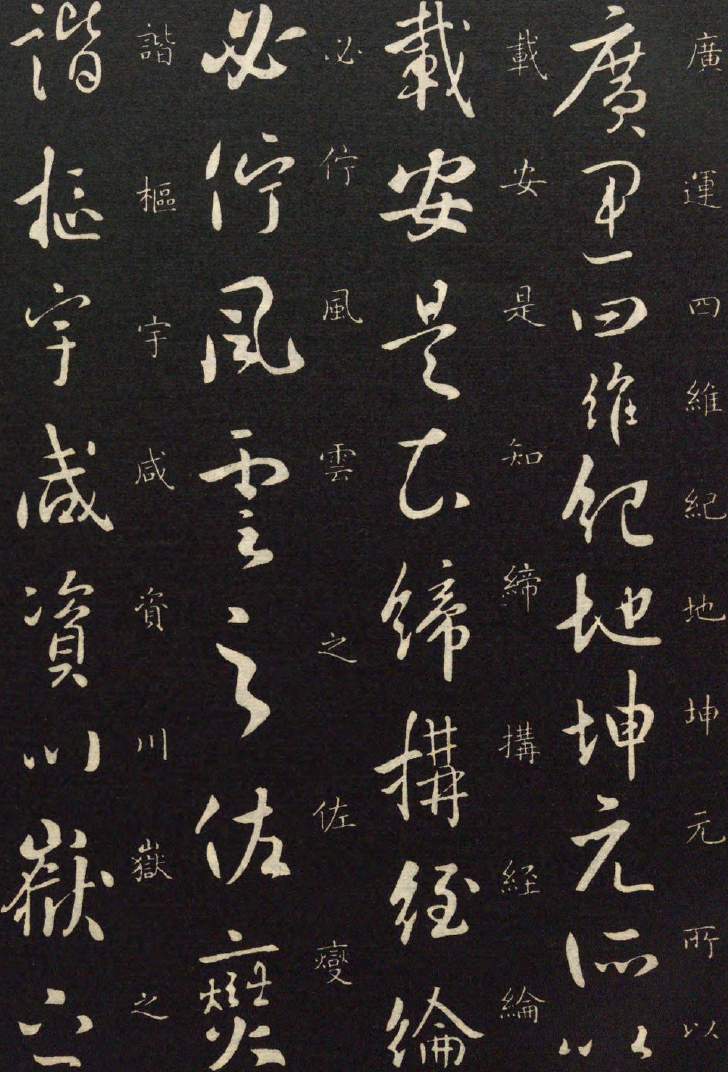 廣運四維紀地坤元所以
廣運四維紀地坤元所以
載安是知締搆経綸
載安是知締搆経綸
必佇風雲之佐燮
必佇風雲之佐爕
諧樞宇咸資川嶽之
諧樞宇咸資川嶽之